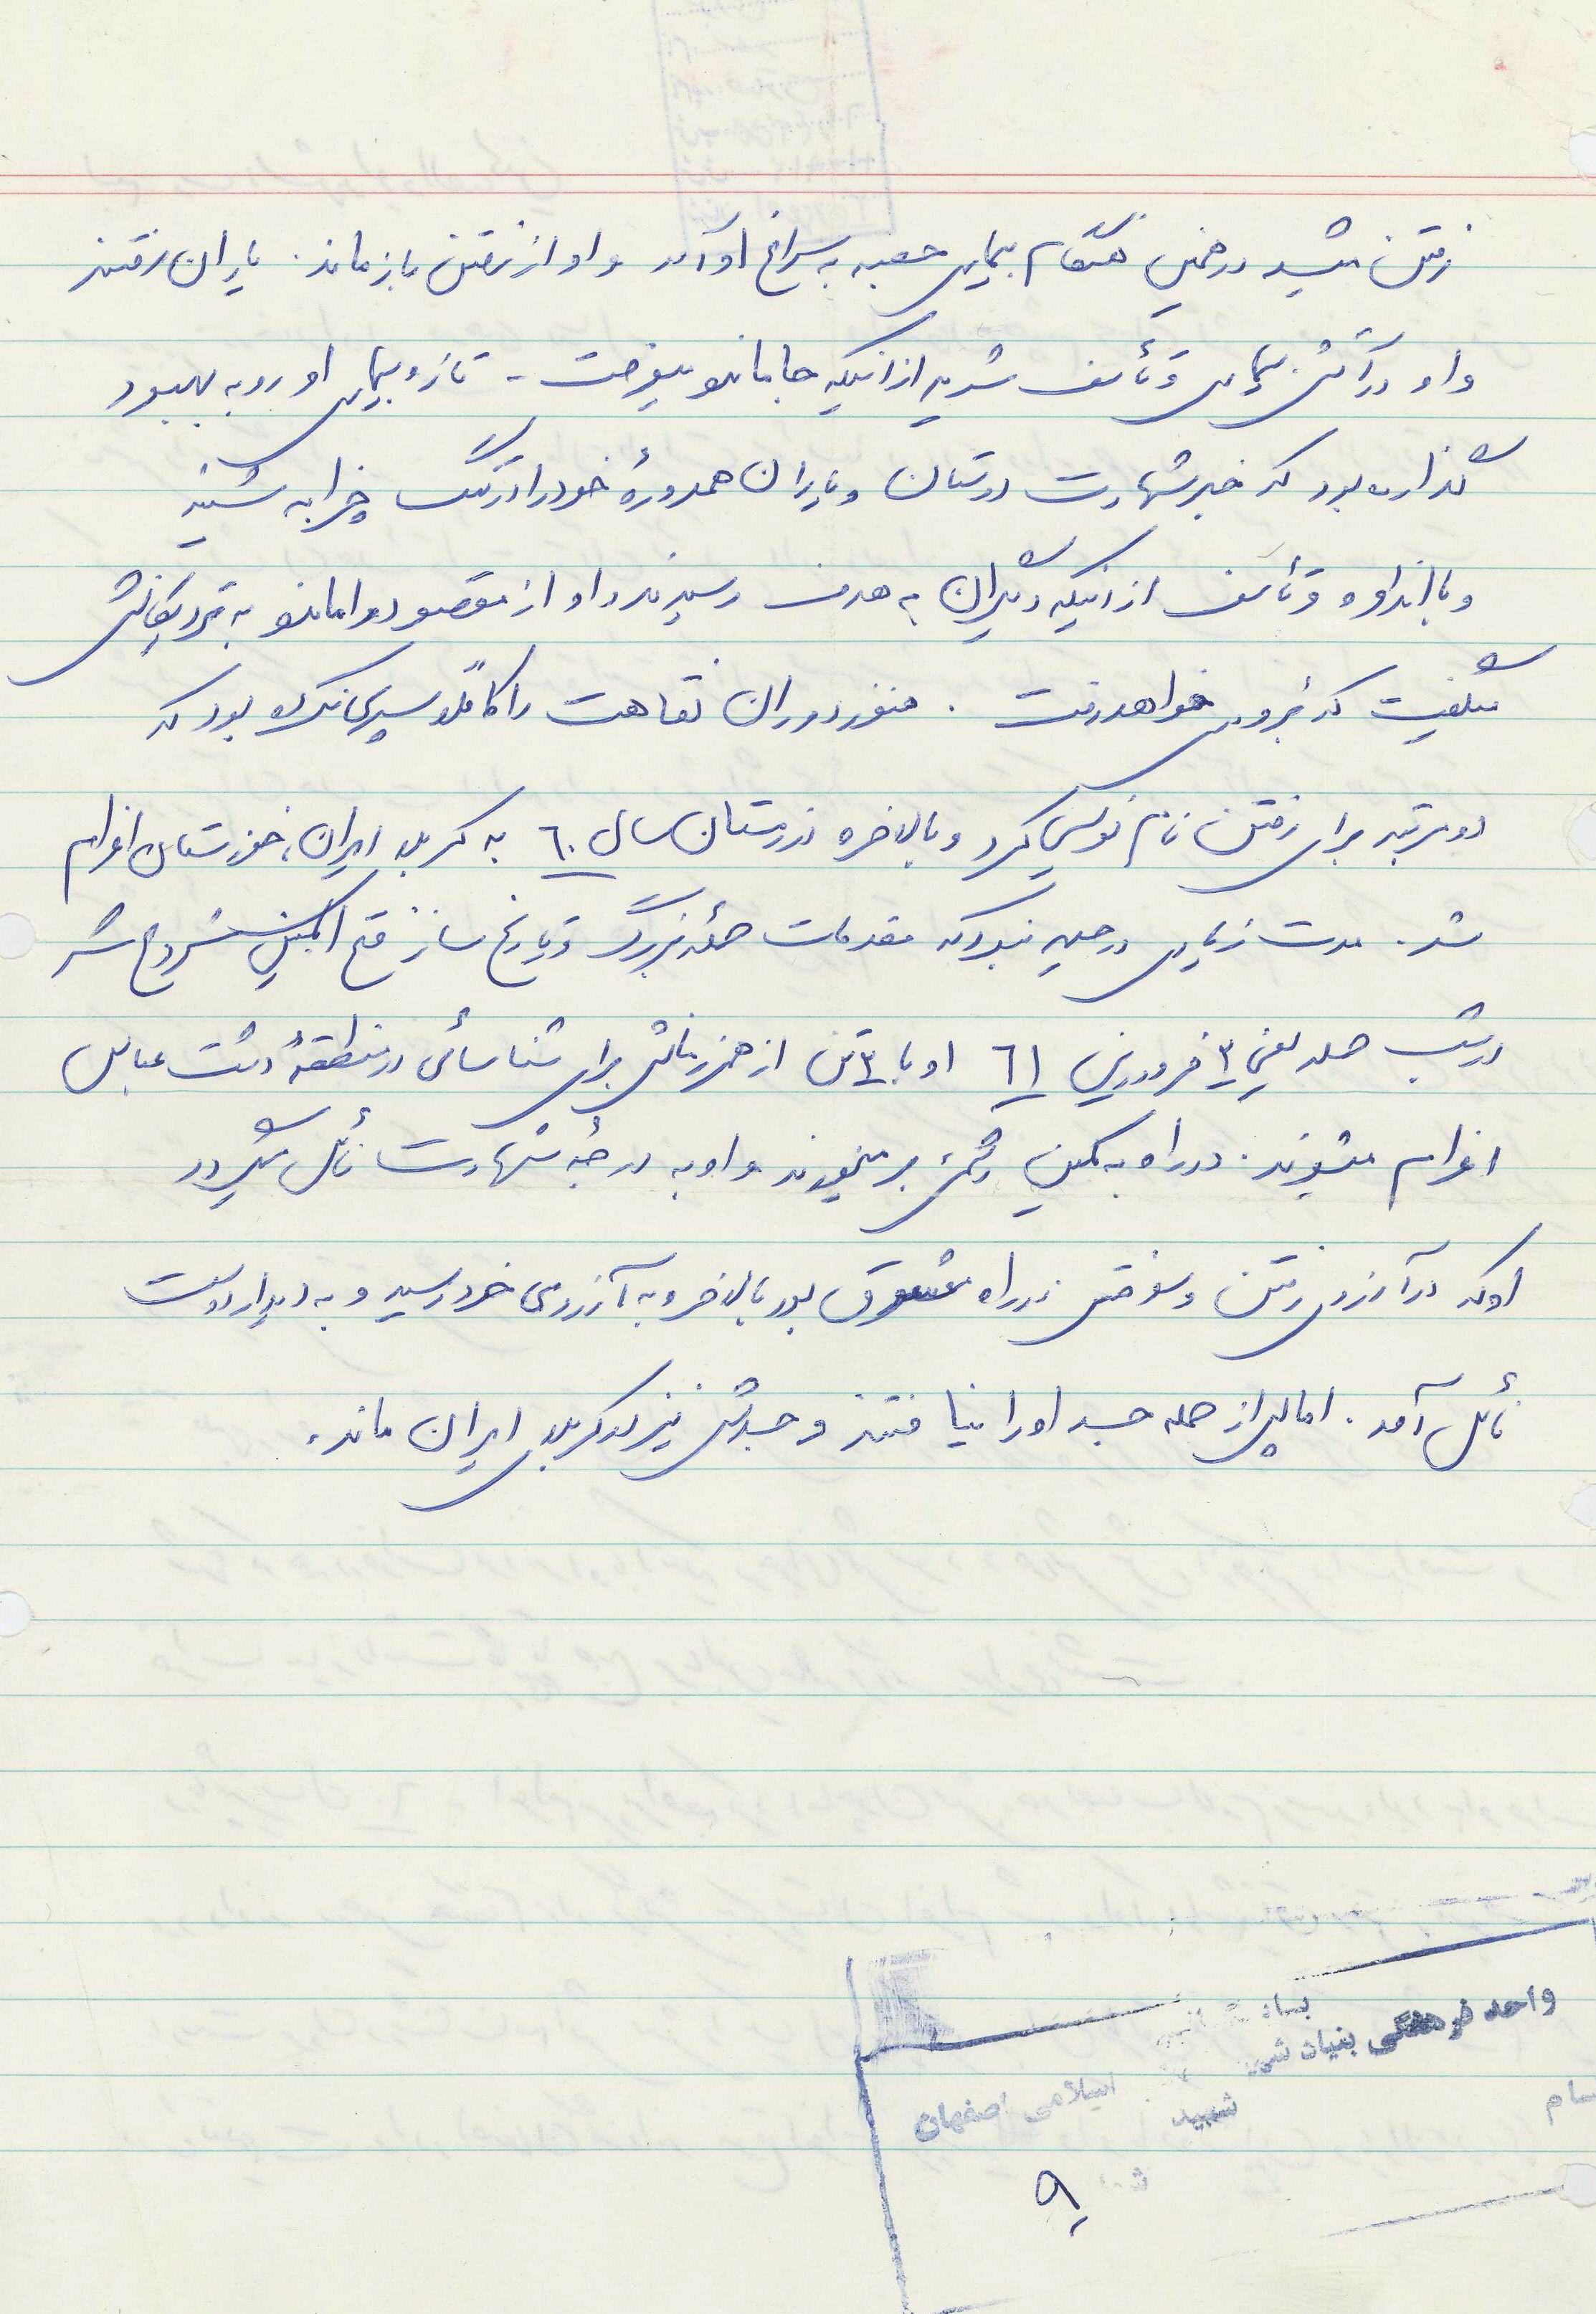 رفتن میشد در همین هنگام بیماری حصبه به سراغ او آمد و او از رفتن بازماند. یاران رفتند
و او در آتش بیماری و تأسف شدید از اینکه جا مانده میسوخت - تازه بیماری او رو به بهبود
گذارده بود که خبر شهادت دوستان و یاران همدورهٔ خود را در تنگ چزابه شنید
و با اندوه و تأسف از اینکه دیگران به هدف رسیدند و او از مقصود وامانده به نزدیکانش
میگفت که بزودی خواهد رفت . هنوز دوران نقاهت را کاملاً سپری نکرده بود که
دو مرتبه برای رفتن نام نویسی کرد و بالاخره در زمستان سال ٦٠ به کربلای ایران، خوزستان اعزام
شد. مدت زیادی در جبهه نبود که مقدمات حملهٔ بزرگ و تاریخ ساز فتح المبین شروع شد
در شب حمله یعنی ٣ فروردین ٦١ او با ٣ تن از همرزمانش برای شناسائی در منطقهٔ دشت عباس
اعزام میشوند. در راه به کمین دشمن بر میخورند و او به درجهٔ شهادت نائل میگردد
او که در آرزوی رفتن و سوختن در راه معشوق بود بالاخره به آرزوی خود رسید و به دیدار دوست
نائل آمد. اما پس از حمله جسد او را نیافتند و جسدش نیز در کربلای ایران ماند.
واحد فرهنگی بنیاد شهید
اسلامی اصفهان
شهید
٩